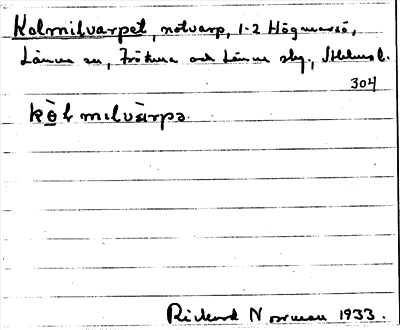 Kolmilvarpet, notvarp, 1-2 Högmarsö,
Länna sn, Frötuna och Länna skg., Sthlms l.
304
kò̱l milvàrpə
Rickard Norrman 1933.